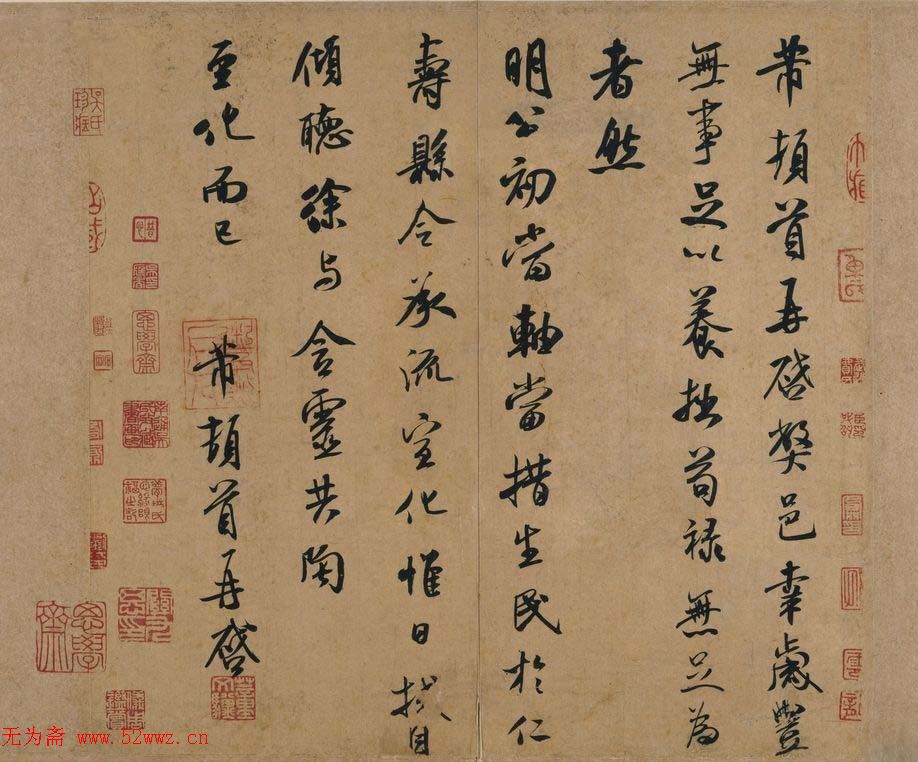 芾頓首再啓弊邑幸歲豐
無事足以養拙苟禄無足為
者然
明公初當軸當措生民於仁
壽縣令承流宣化惟日拭目
傾聽徐与含靈共陶
至化而已
芾頓首再啓
无为斋 www.52wwz.cn